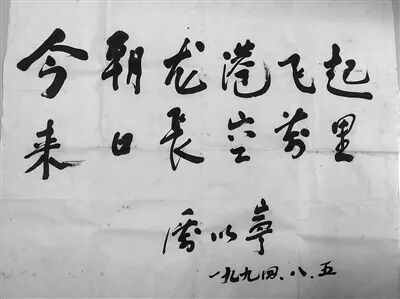 今朝龙港飞起
来日長空萬里
厲以寧
一九九四.八.五